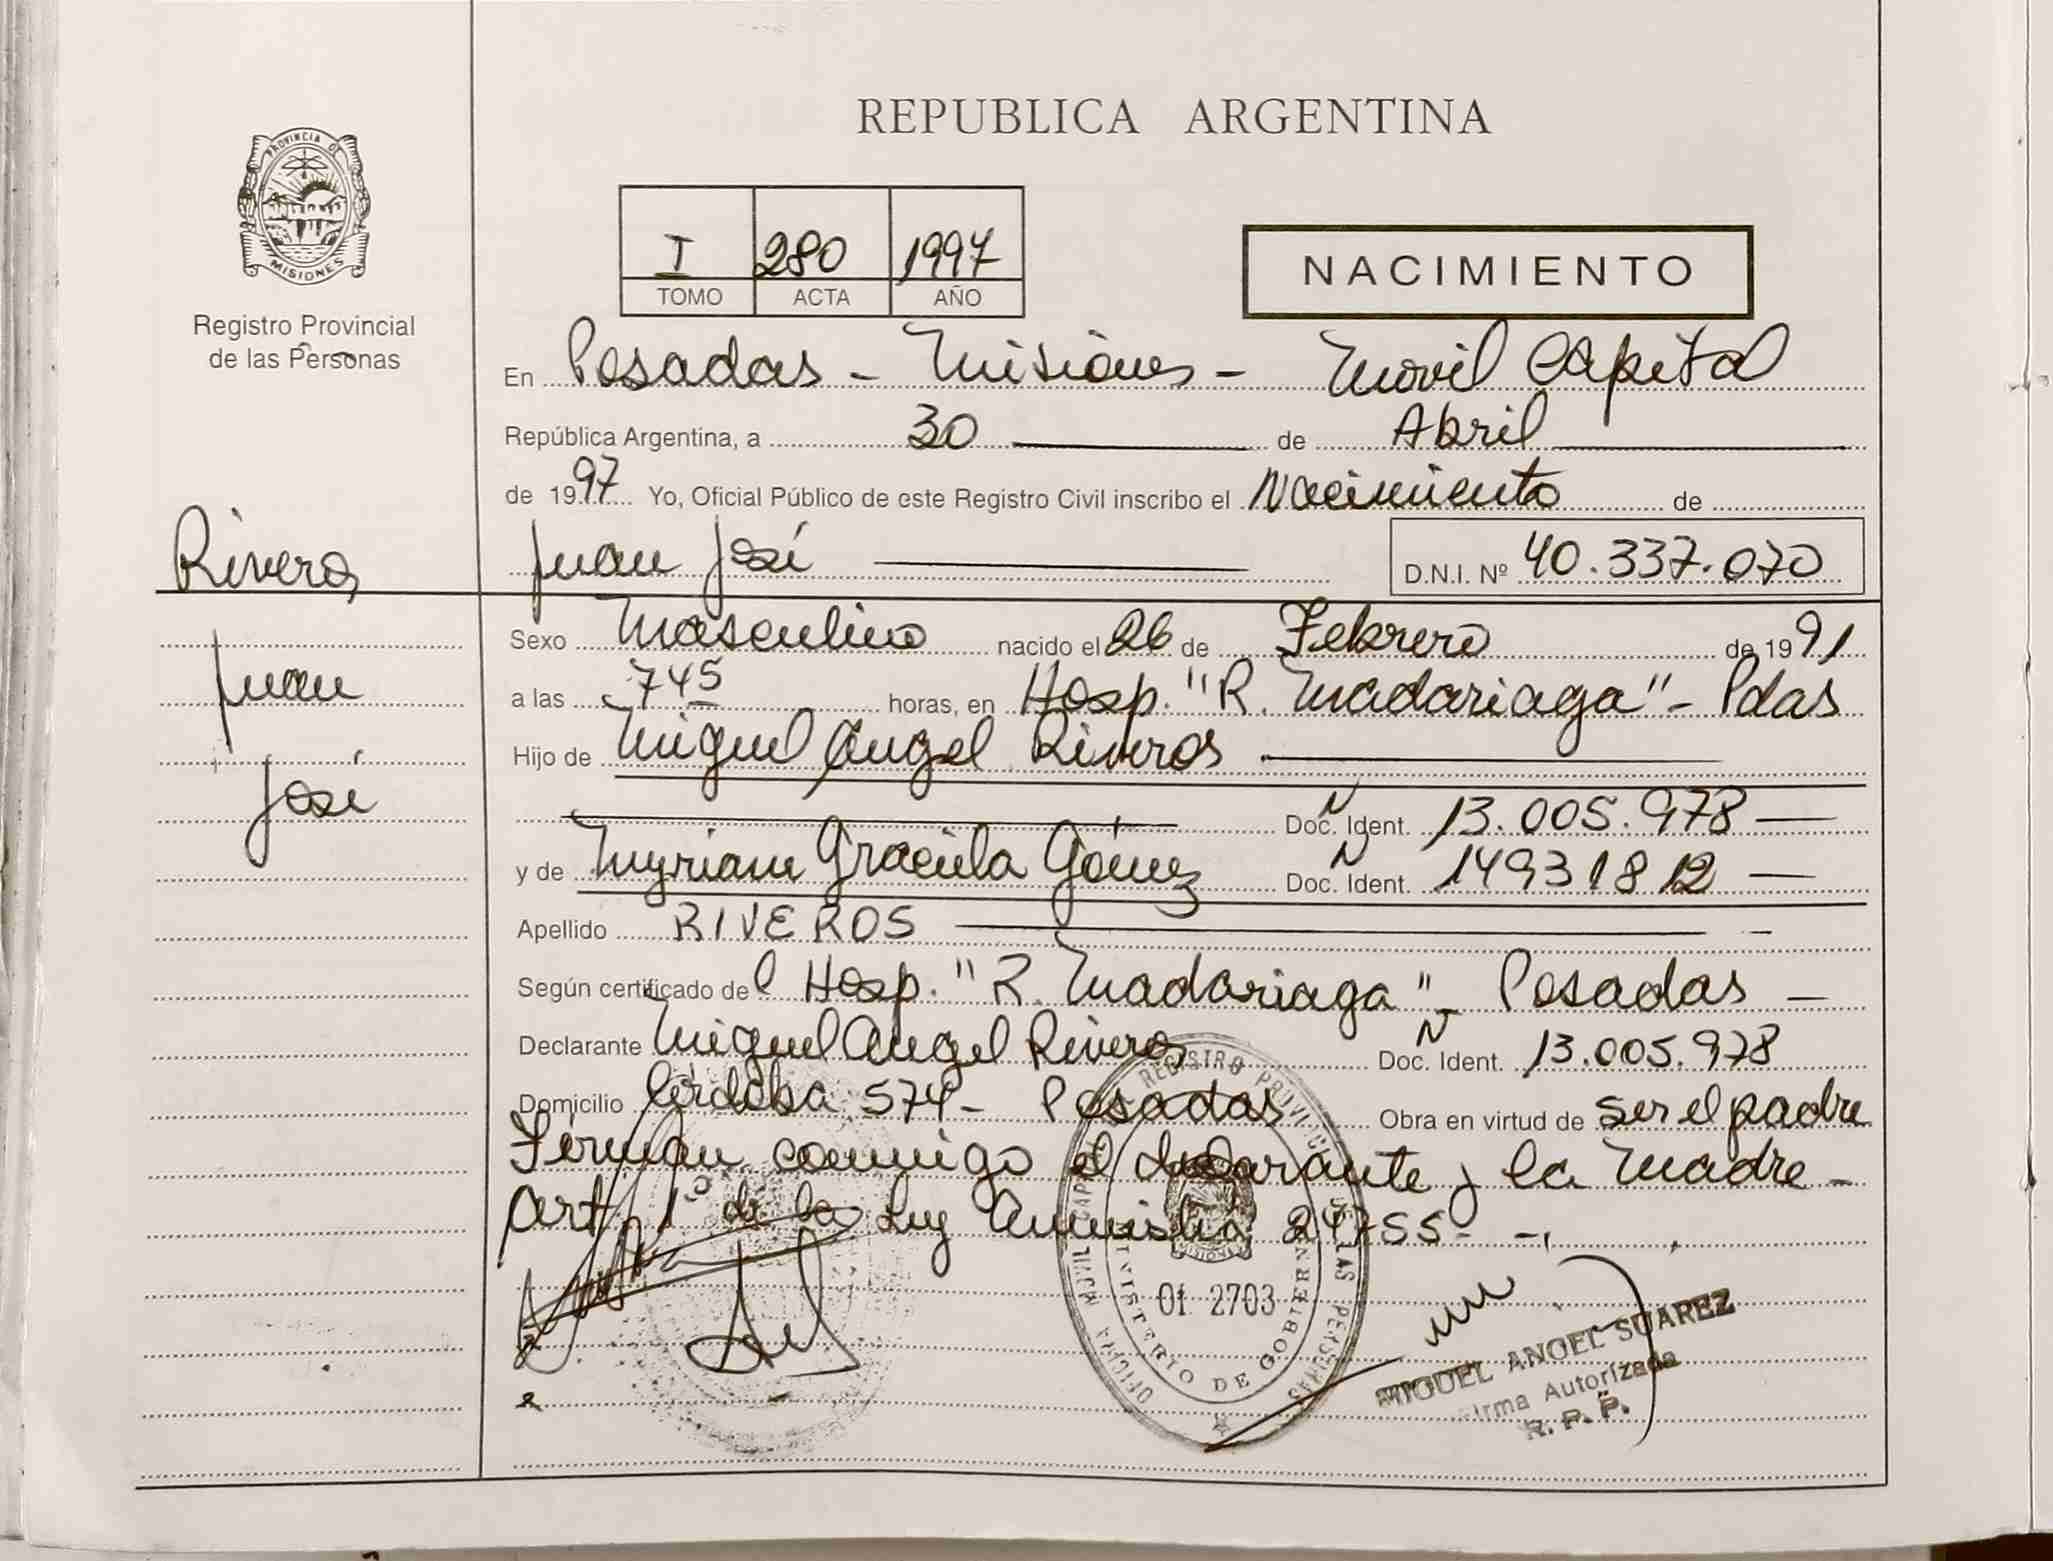 REPUBLICA ARGENTINA
PROVINCIA DE
MISIONES
Registro Provincial
de las Personas
I 280 1997
TOMO ACTA AÑO
NACIMIENTO
En Posadas - Misiones - Movil Capital
República Argentina, a 30 de Abril
de 1997 Yo, Oficial Público de este Registro Civil inscribo el Nacimiento de
Riveros
Juan José
D.N.I. Nº 40.337.070
Juan
José
Sexo Masculino nacido el 26 de Febrero de 1991
a las 745 horas, en Hosp. "R. Madariaga" - Pdas
Hijo de Miguel Angel Riveros
Doc. N Ident. 13.005.978
y de Myriam Graciela Gómez Doc. N Ident. 14931812
Apellido RIVEROS
Según certificado del Hosp. "R. Madariaga" Posadas -
Declarante Miguel Angel Riveros Doc. N Ident. 13.005.978
Domicilio Córdoba 574 - Posadas Obra en virtud de ser el padre
Firman conmigo el declarante y la madre -
Art. 1º de la Ley Amnistia 24755 -
REGISTRO PROVINCIAL DE LAS PERSONAS
OFICINA MOVIL CAPITAL
MINISTERIO DE GOBIERNO
01 2703
MIGUEL ANGEL SUAREZ
Firma Autorizada
R. P. P.